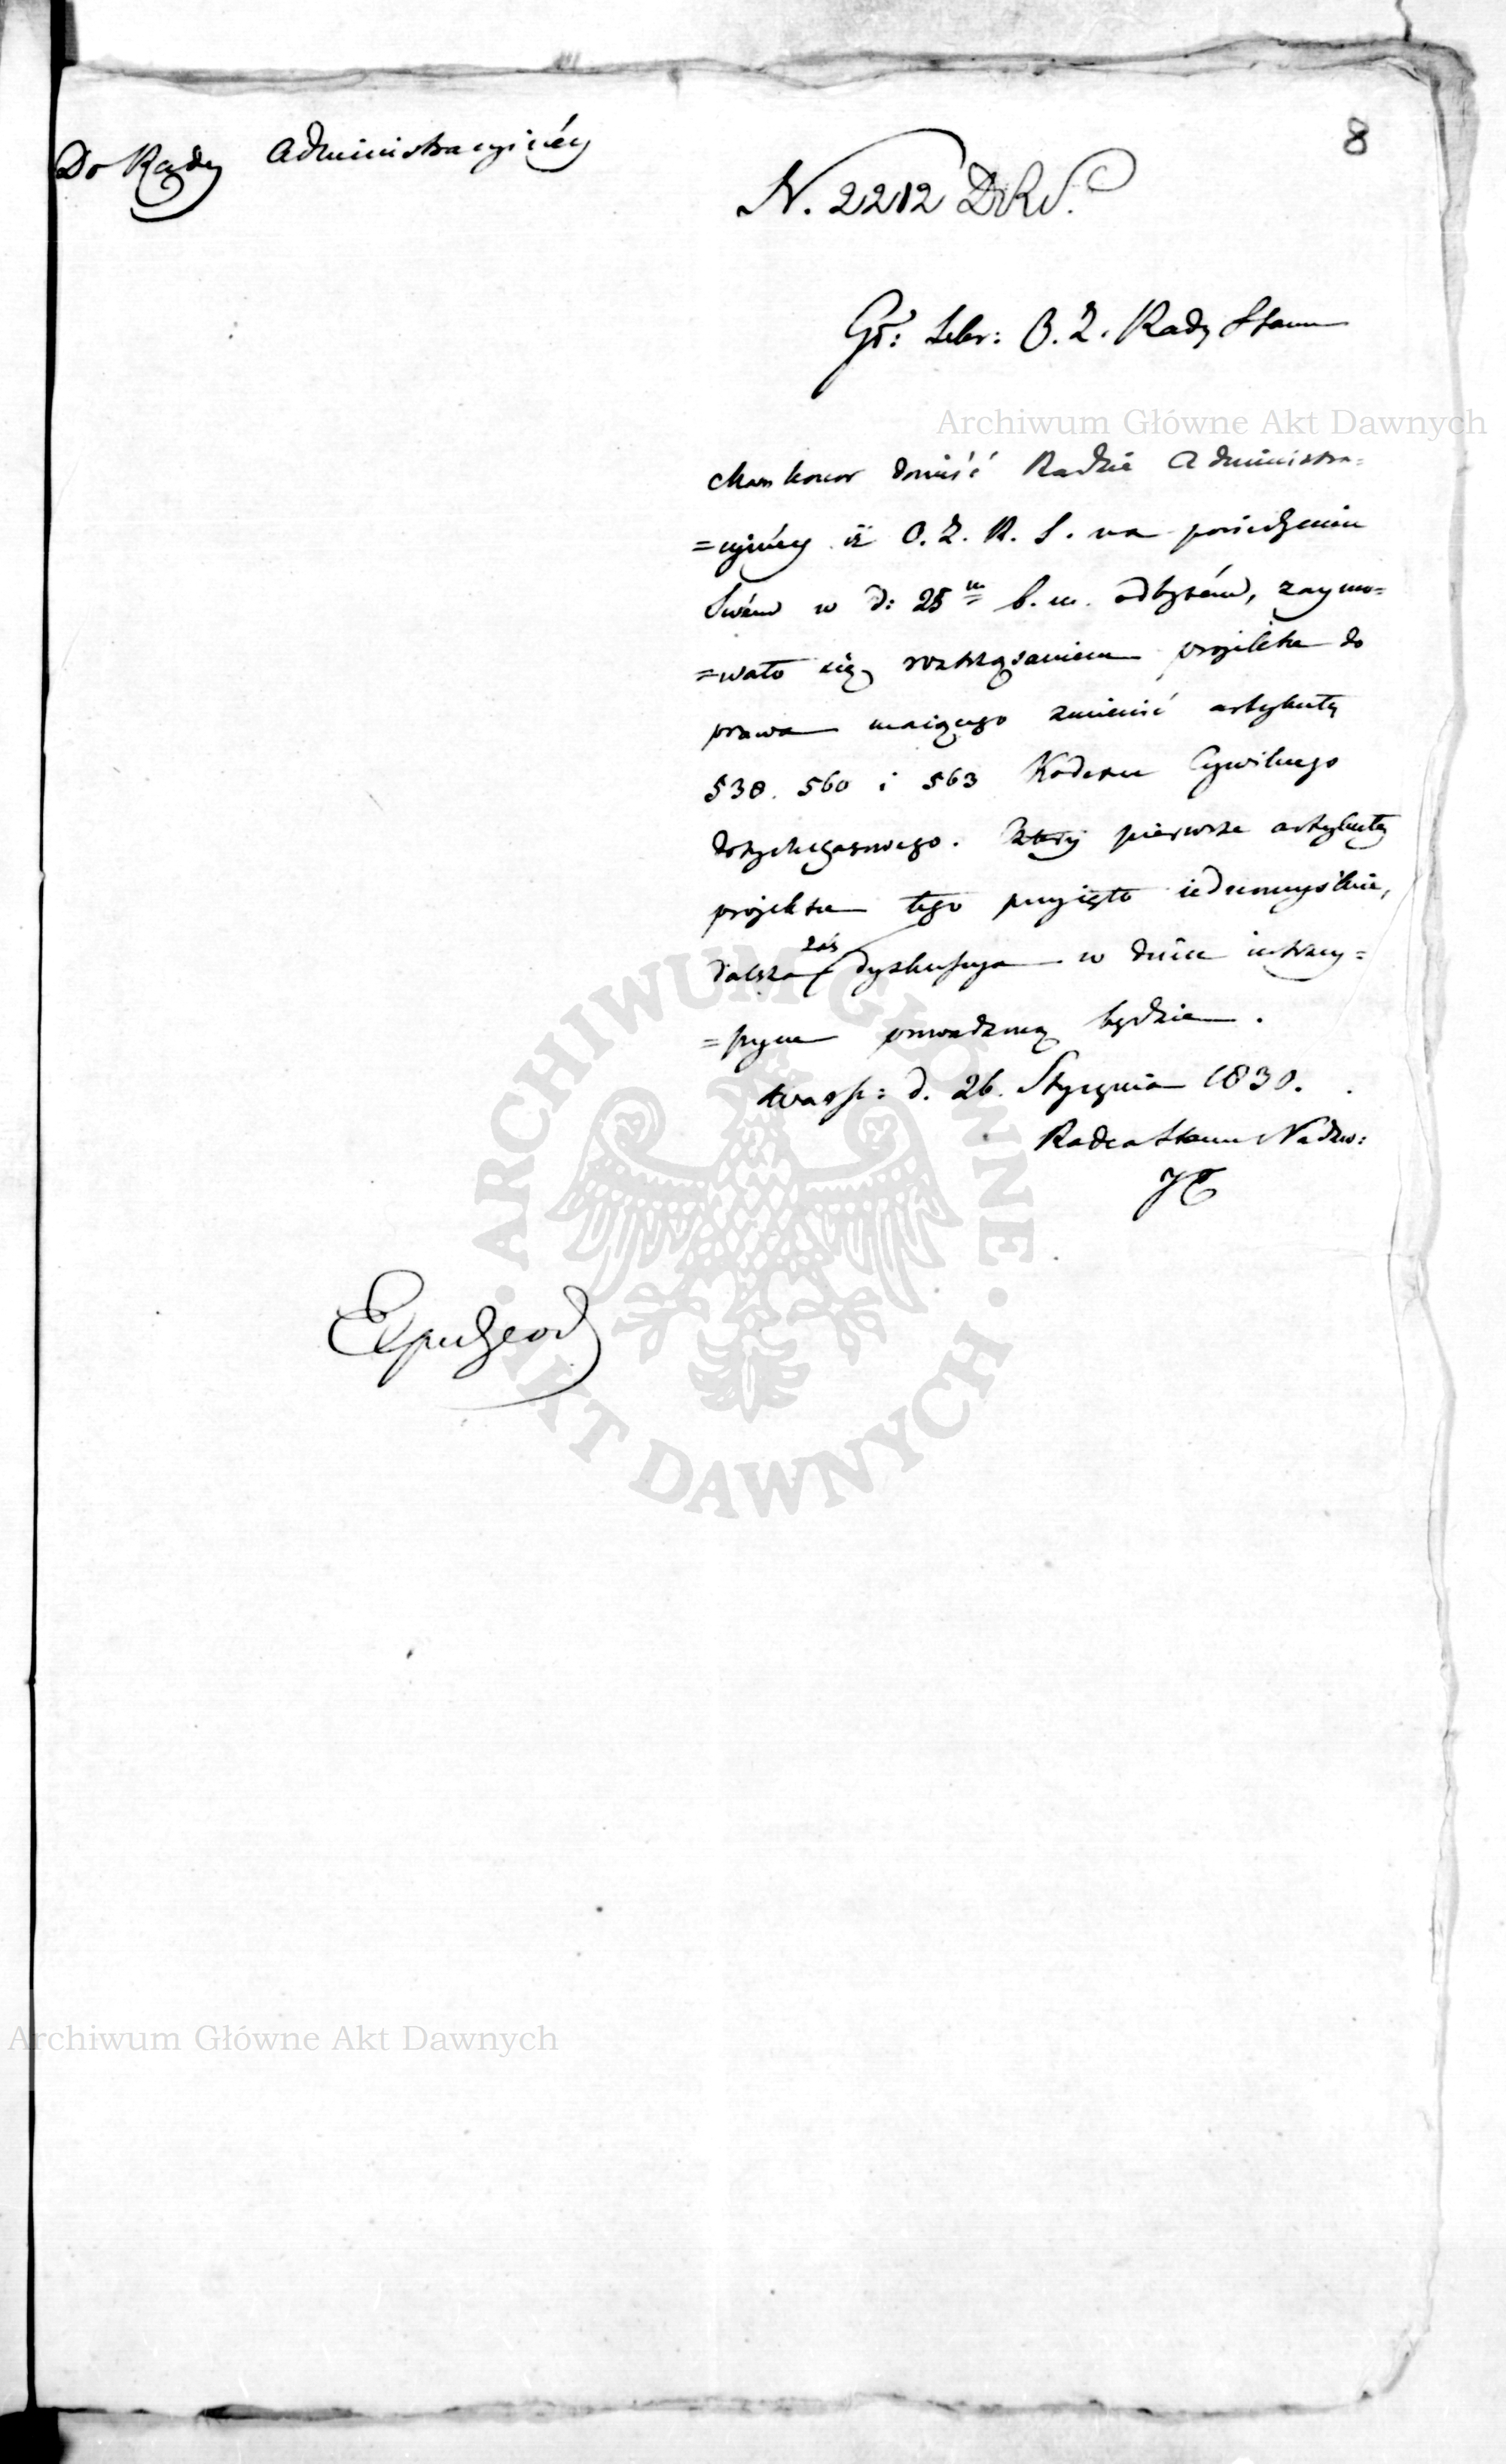 8
Do Rady Administracyinéy
N. 2212 DRS.
Gł: Sekr: O. Z. Rady Stanu
Archiwum Główne Akt Dawnych
Mam honor donieść Radzie Administra=
=cyinéy iż O. Z. R. S. na posiedzeniu
Swém w d: 25 m b. m. odbytém, zaymo=
=wało się roztrząsaniem projektu do
prawa maiącego zmienić artykuły
530. 560 i 563 Kodexu Cywilnego
dotychczasowego. pierwsze artykuły
projektu tego przyięto iednomyślnie,
dalsza zaś dyskussya w dniu iutrzey=
=szym prowadzoną będzie.
Warsz: d. 26. Stycznia 1830.
Radca Stanu Nadzw:
Expedyow
ARCHIWUM GŁÓWNE AKT DAWNYCH
Archiwum Główne Akt Dawnych